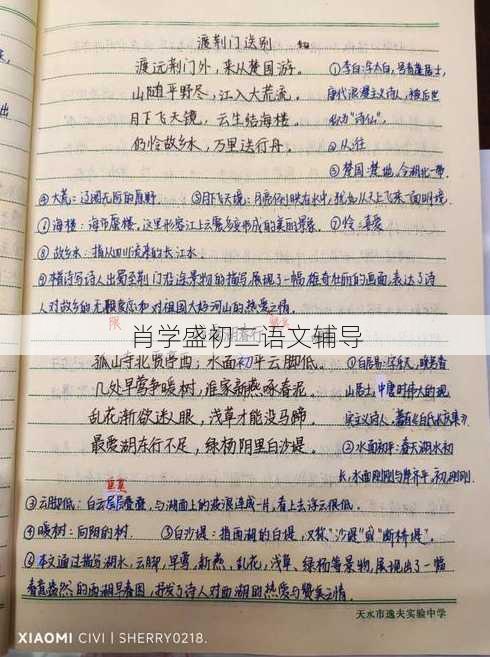 渡荆门送别 李白
渡远荆门外，来从楚国游。
山随平野尽，江入大荒流。
月下飞天镜，云生结海楼。
仍怜故乡水，万里送行舟。
①李白：字太白，号青莲居士，
唐代浪漫主义诗人，被后世
称为“诗仙”。
②从：往
③楚国：楚地，今湖北一带
④大荒：辽阔无际的原野。 ⑤月下飞天镜：月亮倒映在水中，犹如从天上飞来一面明镜。
⑥海楼：海市蜃楼，这里形容江上云霞多变形成的美丽景象。 ⑦怜：喜爱
⑧故乡水：指从四川流来的长江水
人对故乡的无限 和对祖国大好河山的热爱之情。
限
肖学盛初一语文辅导
孤山寺北贾亭西，水面初平云脚低。
几处早莺争暖树，谁家新燕啄春泥。
乱花渐欲迷人眼，浅草才能没马蹄。
最爱湖东行不足，绿杨阴里白沙堤。
①白居易：字乐天，晚号香
山居士，中唐时伟大的现
实主义诗人，著有《白氏长庆集》
②水面初平：春天湖水初
长，水面刚刚与岸齐平，初，刚刚
重重
③云脚低：白云层层叠叠，与湖面上的波浪连成一片，看上去浮云很低。
④暖树：向阳的树. ⑤白沙堤：指西湖的白堤，又称“沙堤”或“断桥堤”。
⑥本文通过描写湖水，云脚，早莺，新燕，乱花，浅草，绿杨等景物，展现出了一幅
春意盎然的西湖早春图，抒发了诗人对西湖的热爱与赞美之情.
天水市逸夫实验中学
XIAOMI CIVI | SHERRY0218.